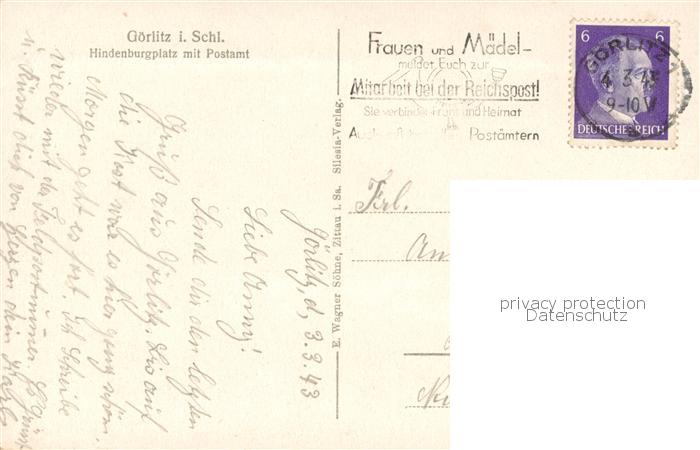 Görlitz i. Schl.
Hindenburgplatz mit Postamt
Frauen und Mädel-
meldet Euch zur
Mitarbeit bei der Reichspost!
Sie verbindet Front und Heimat
Postämtern
6 6
GÖRLITZ
4.3.43
9-10 V
DEUTSCHES REICH
E. Wagner Söhne, Zittau i. Sa. Silesia-Verlag.
Görlitz, d, 3.3.43
Liebe Anny!
Sende dir den letzten
Gruß aus Görlitz. Bis auf
die Kost war es hier ganz schön.
Morgen geht es fort. Ich schreibe
wieder mit der Feldpostnummer. Es grüßt
u. küsst dich von Herzen dein Karl
Frl.
An
privacy protection
Datenschutz